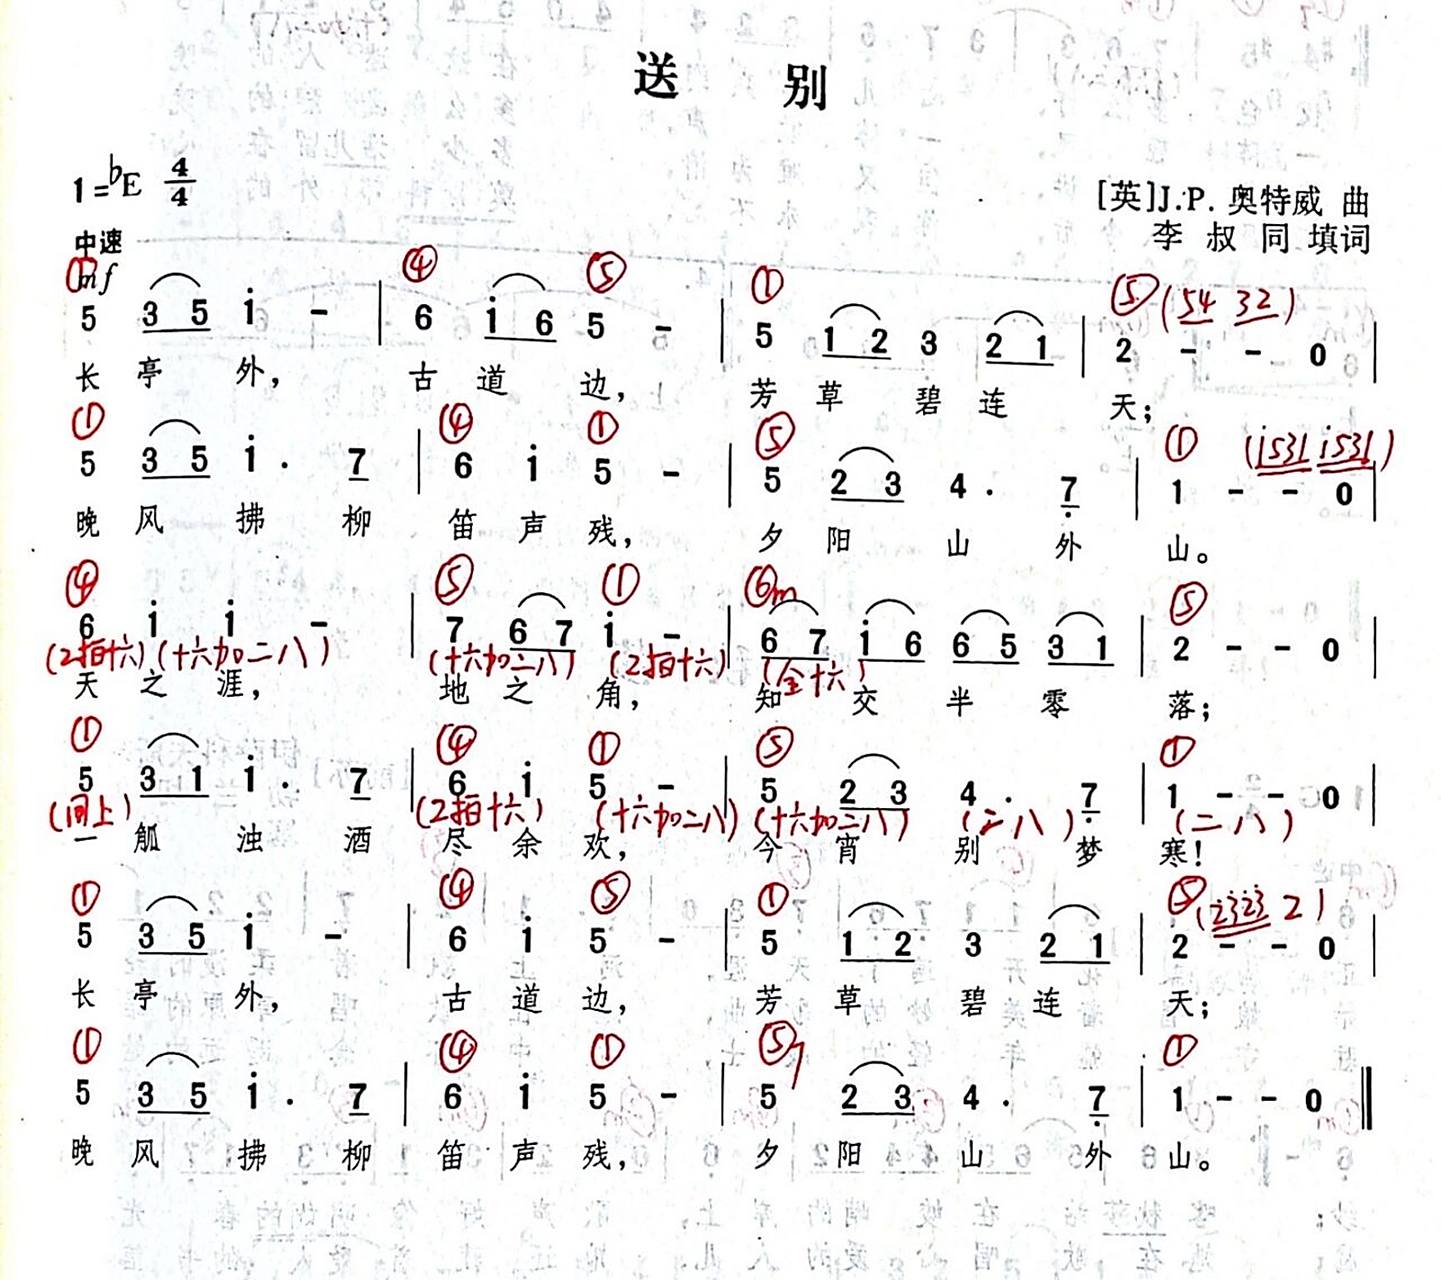 送 别
1=♭E 4/4
[英]J.P. 奥特威 曲
中速
李 叔 同 填词
① mf ④ ⑤ ① ⑤ (54 32)
5 3 5 i - | 6 i 6 5 - | 5 1 2 3 2 1 | 2 - - 0 |
长 亭 外, 古 道 边, 芳 草 碧 连 天;
① ④ ① ⑤ ① (i531 i531)
5 3 5 i . 7 | 6 i 5 - | 5 2 3 4 . 7 | 1 - - 0 |
晚 风 拂 柳 笛 声 残, 夕 阳 山 外 山。
④ ⑤ ① ⑥m ⑤
6 i i - | 7 6 7 i - | 6 7 i 6 6 5 3 1 | 2 - - 0 |
(2拍十六) (十六加二八) (十六加二八) (2拍十六) (全十六)
天 之 涯, 地 之 角, 知 交 半 零 落;
① ④ ① ⑤ ①
5 3 1 i . 7 | 6 i 5 - | 5 2 3 4 . 7 | 1 - - 0 |
(同上) (2拍十六) (十六加二八) (十六加二八) (二八) (二八)
一 觚 浊 酒 尽 余 欢, 今 宵 别 梦 寒!
① ④ ⑤ ① ⑤ (2323 2)
5 3 5 i - | 6 i 5 - | 5 1 2 3 2 1 | 2 - - 0 |
长 亭 外, 古 道 边, 芳 草 碧 连 天;
① ④ ① ⑤7 ①
5 3 5 i . 7 | 6 i 5 - | 5 2 3 4 . 7 | 1 - - 0 ‖
晚 风 拂 柳 笛 声 残, 夕 阳 山 外 山。